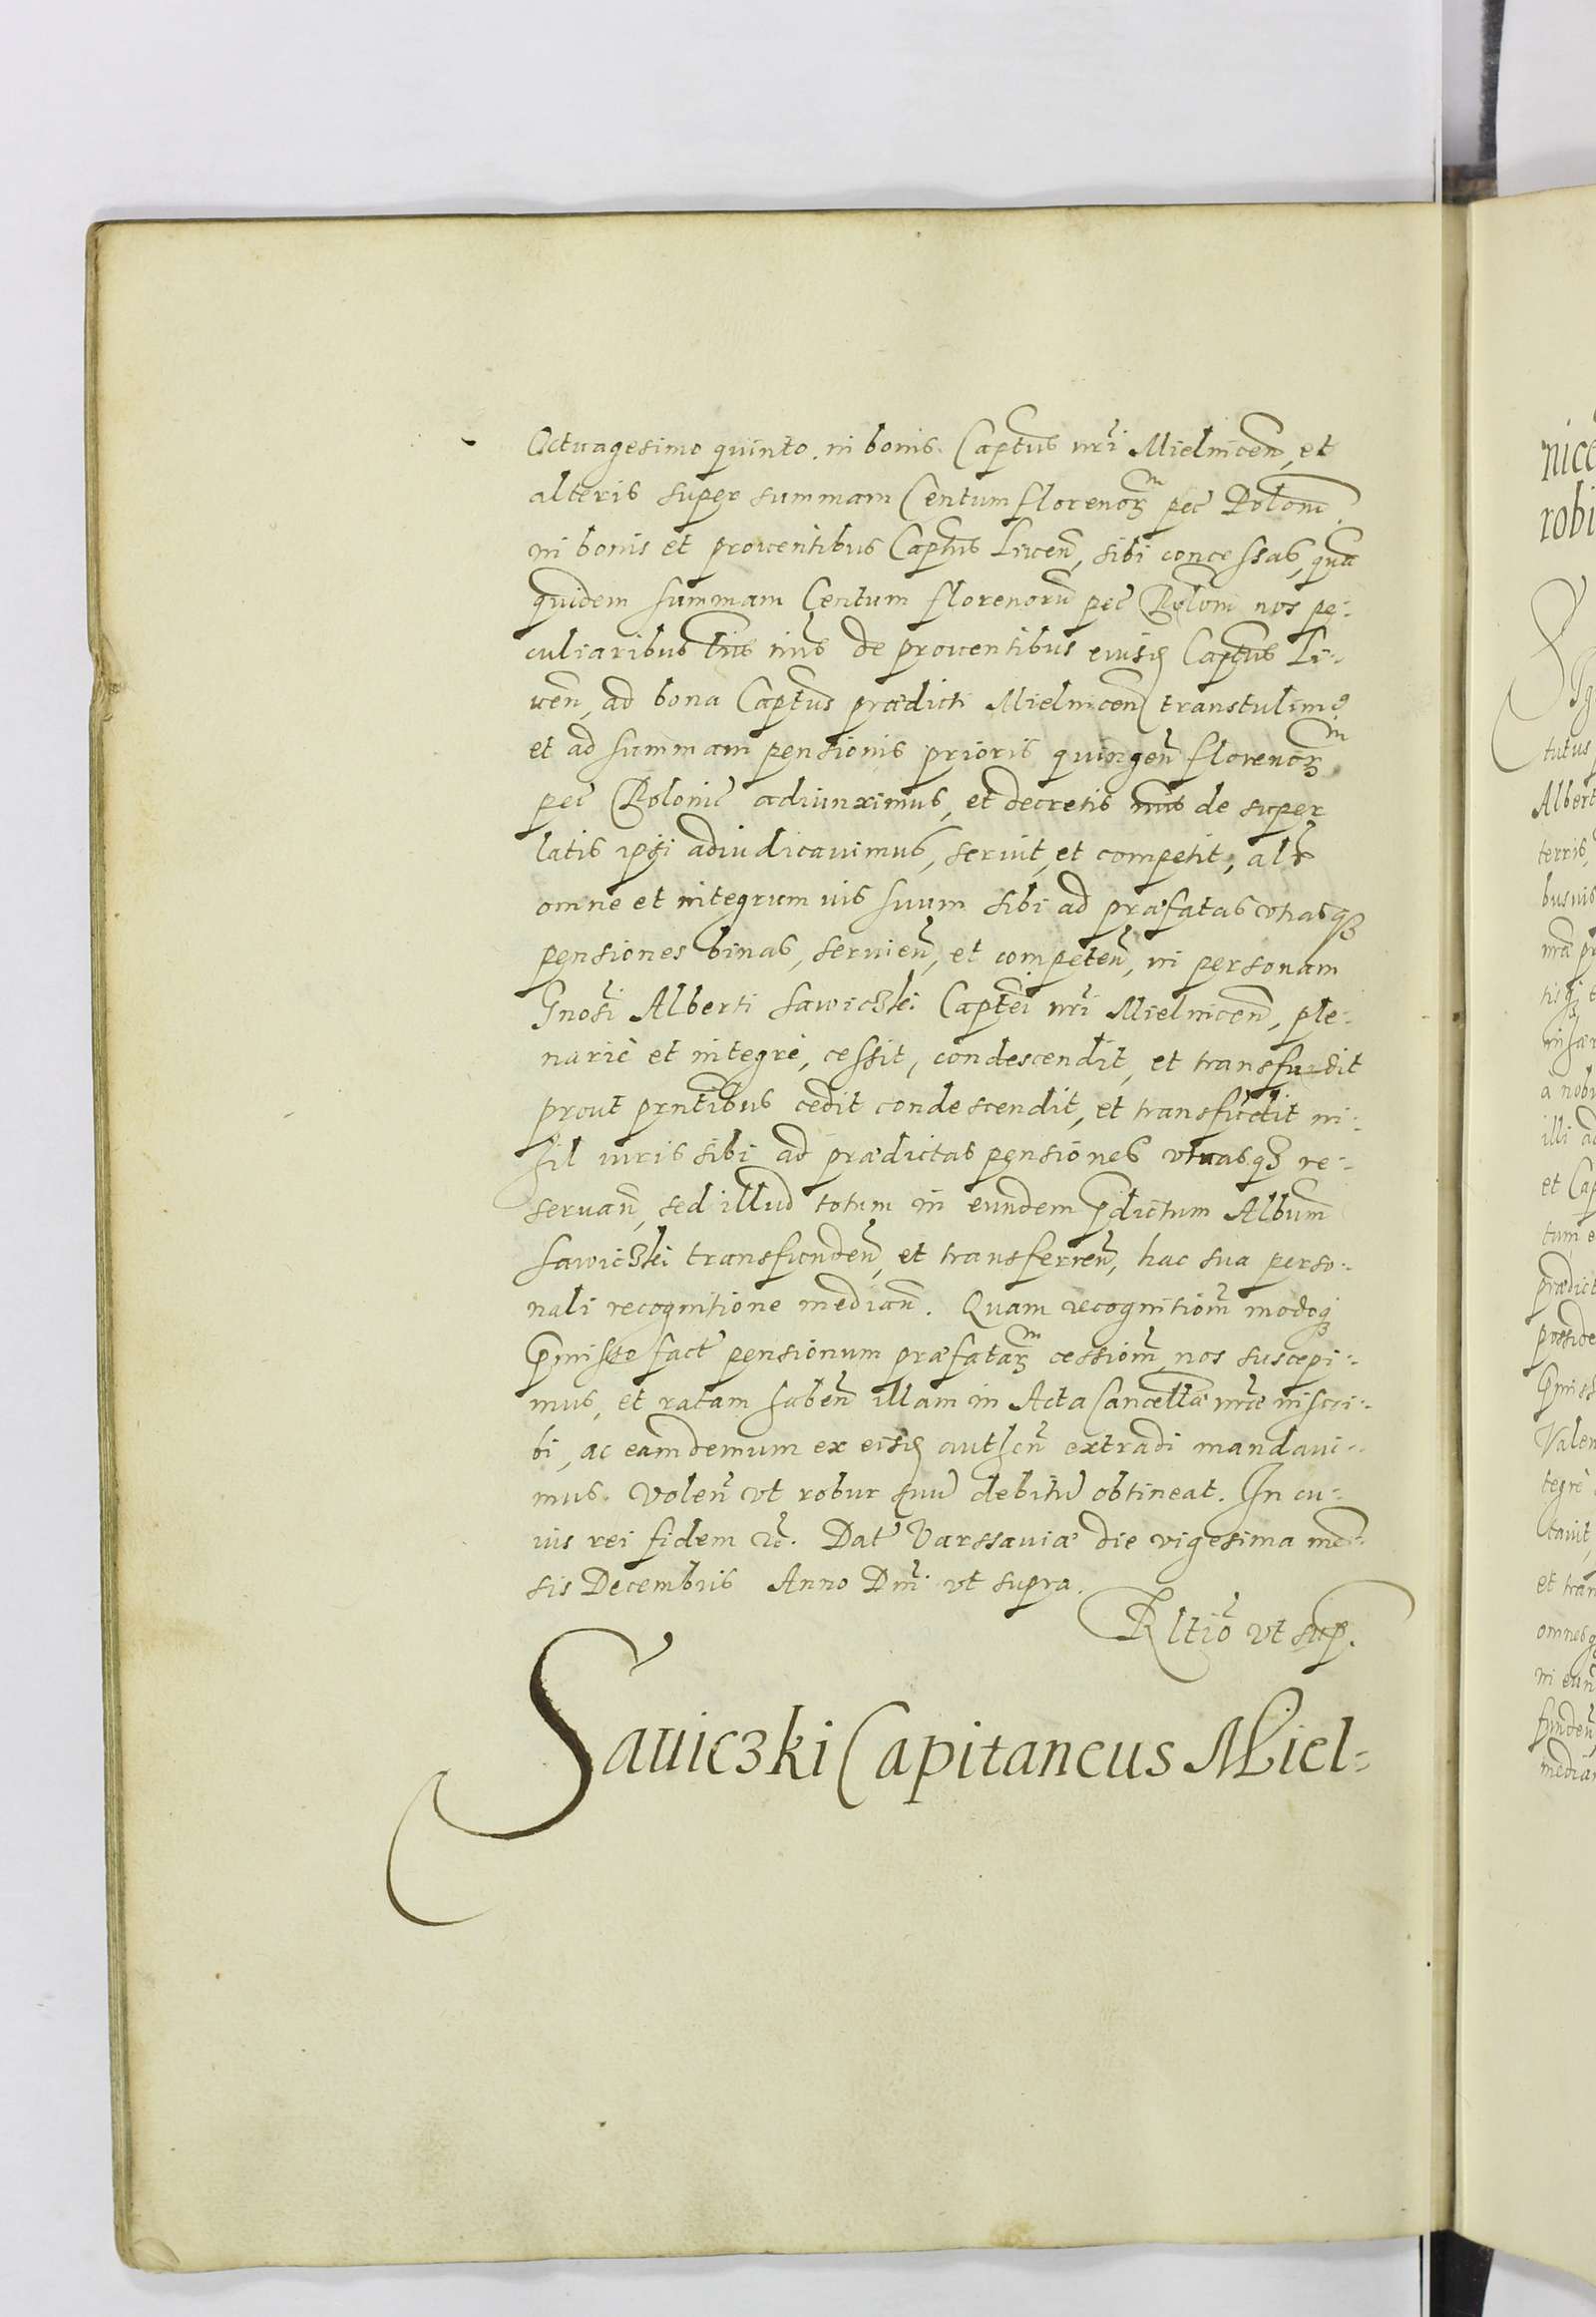 Octuagesimo quinto. in bonis. Capttus nri Mielnicen, et
alteris super summam Centum florenorm pec Polonic
in bonis et prouentibus Capttus Livcen, sibi concessas, qua
quidem summam Centum florenoru pec Polonic nos pe-
culiaribus lris nris de prouentibus eiusd Capttus Li-
ucen, ad bona Capttus prædicti Mielnicen transtulimus
et ad summam pensionis prioris quingen florenorm
pec Polonic adiunximus, et decretis nris de super
latis ipsi adiudicauimus, seruit, et competit, als
omne et integrum ius suum sibi ad præfatas vtrasq3
pensiones binas, seruien, et competen, in personam
Gnosi Alberti Sawic3ki Captei nri Mielnicen, ple-
narie et integre, cessit, condescendit, et transfudit
prout prntibus cedit condescendit, et transfudit ni-
hil iuris sibi ad prædictas pensiones vtrasq3 re-
seruan, sed illud totum in eundem pdictum Album
Sawic3ki transfunden, et transferen, hac sua perso-
nali recognitione median. Quam recognitiom modoq3
pmisso fact pensionum præfatarm cessiom, nos suscepi-
mus, et ratam haben illam in Acta Cancellæ nræ inscri-
bi, ac eam demum ex eisd authen extradi mandaui-
mus. Volen vt robur suu debitu obtineat. In cu-
ius rei fidem &c. Dat Varssauiæ die vigesima men-
sis Decembris Anno Dni vt supra.
Rltio vt sup.
Sauic3ki Capitaneus Miel-
nice
robi
tutus
Albert
terris,
busuis
a nobi
illi ad
et Cap
tum e
prædict
posside
Valen
tegre
et tran
omnes
in eun
funden
median